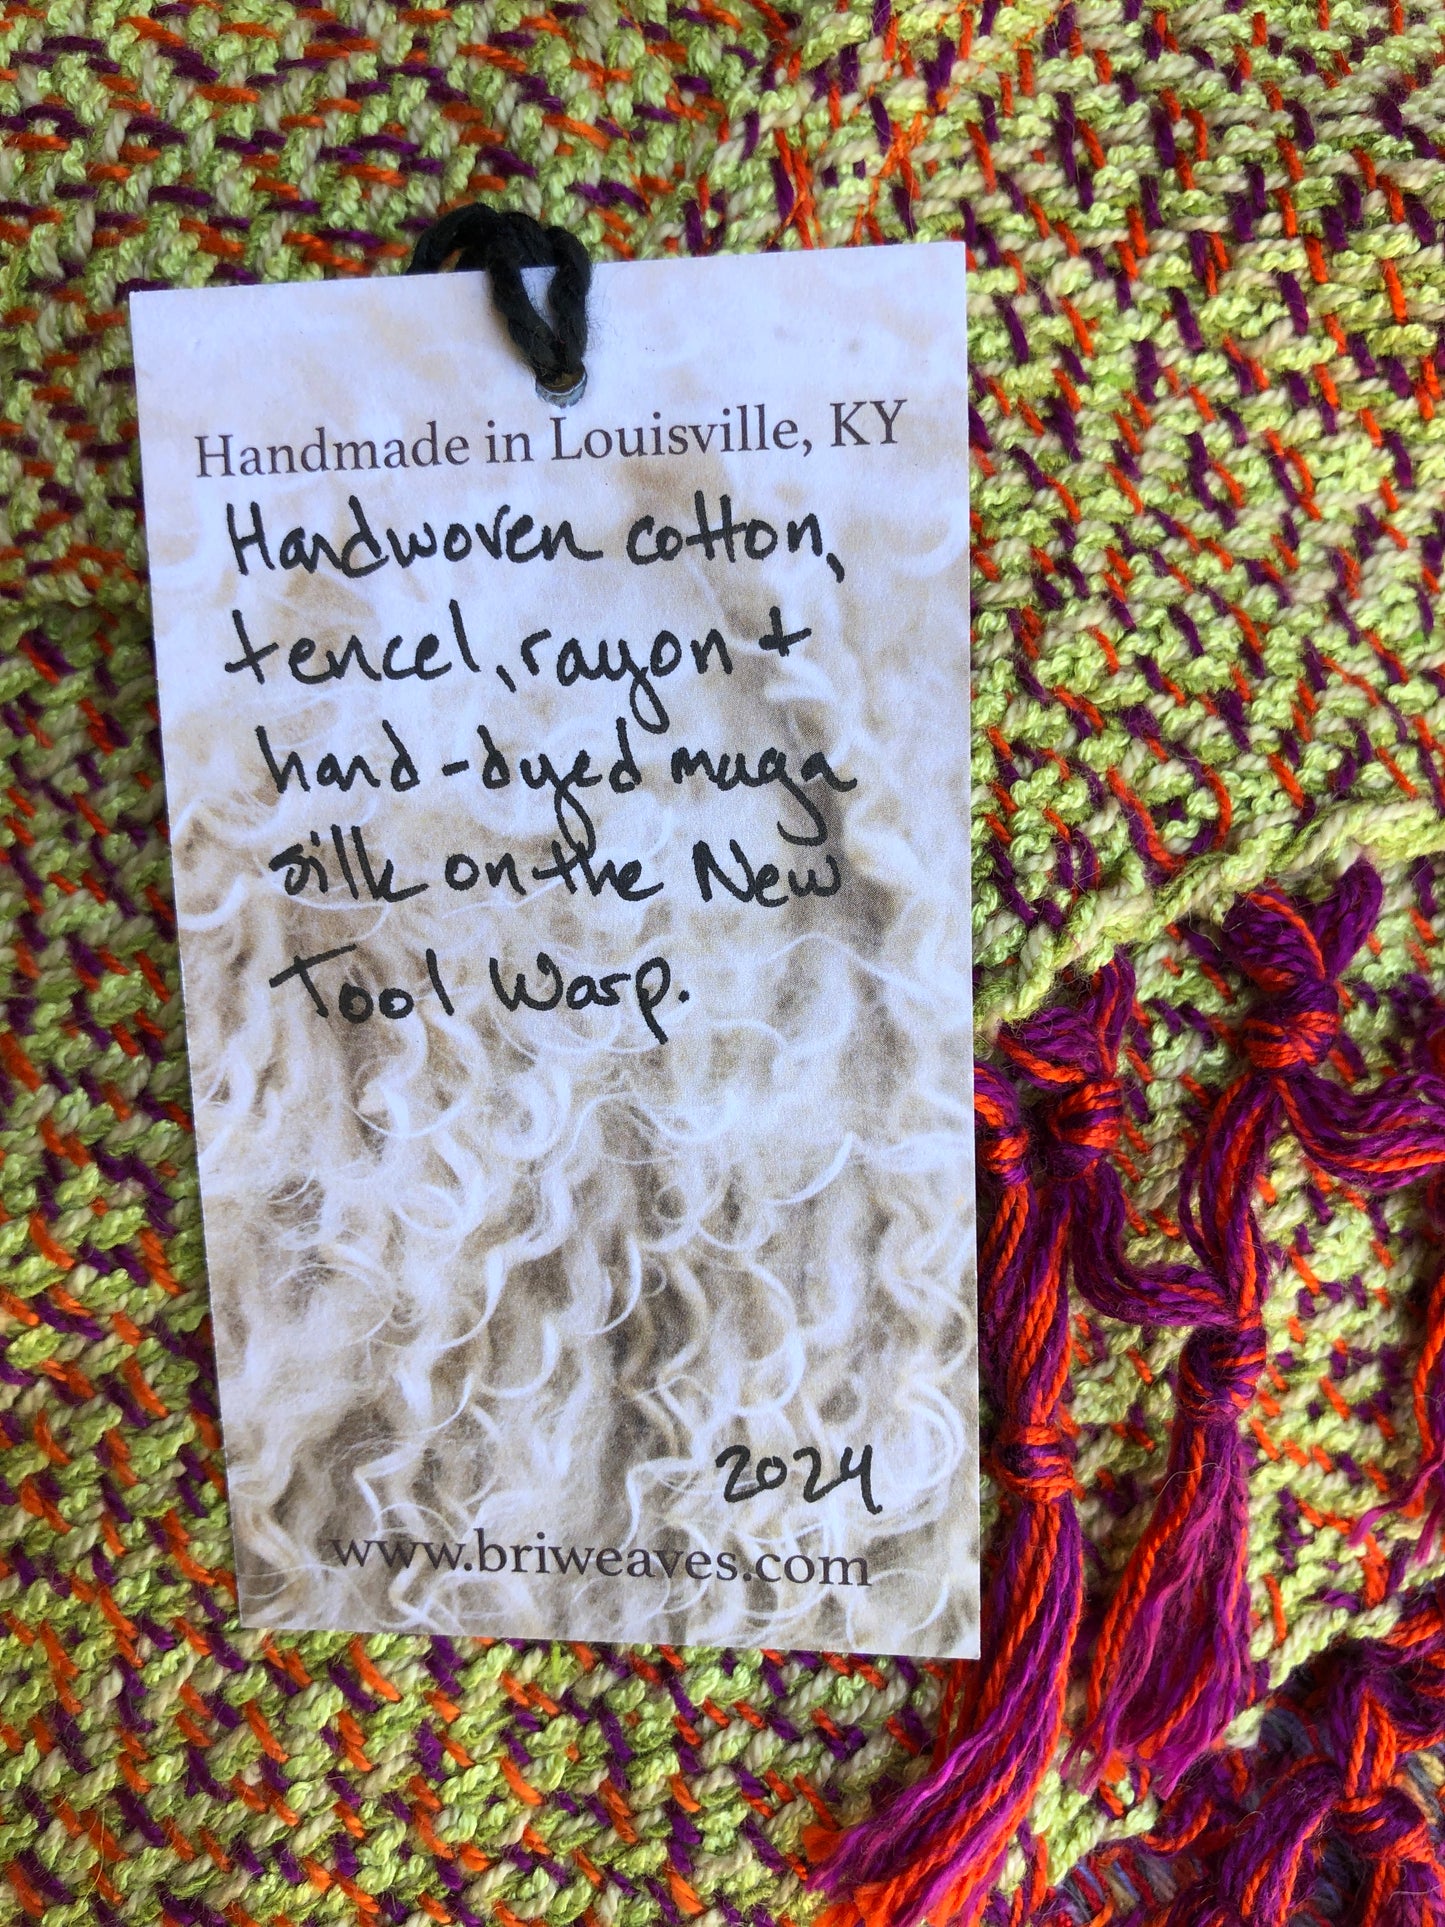 Handmade in Louisville, KY
Handwoven cotton,
tencel, rayon +
hand-dyed muga
silk on the New
Tool Warp.
2024
www.briweaves.com